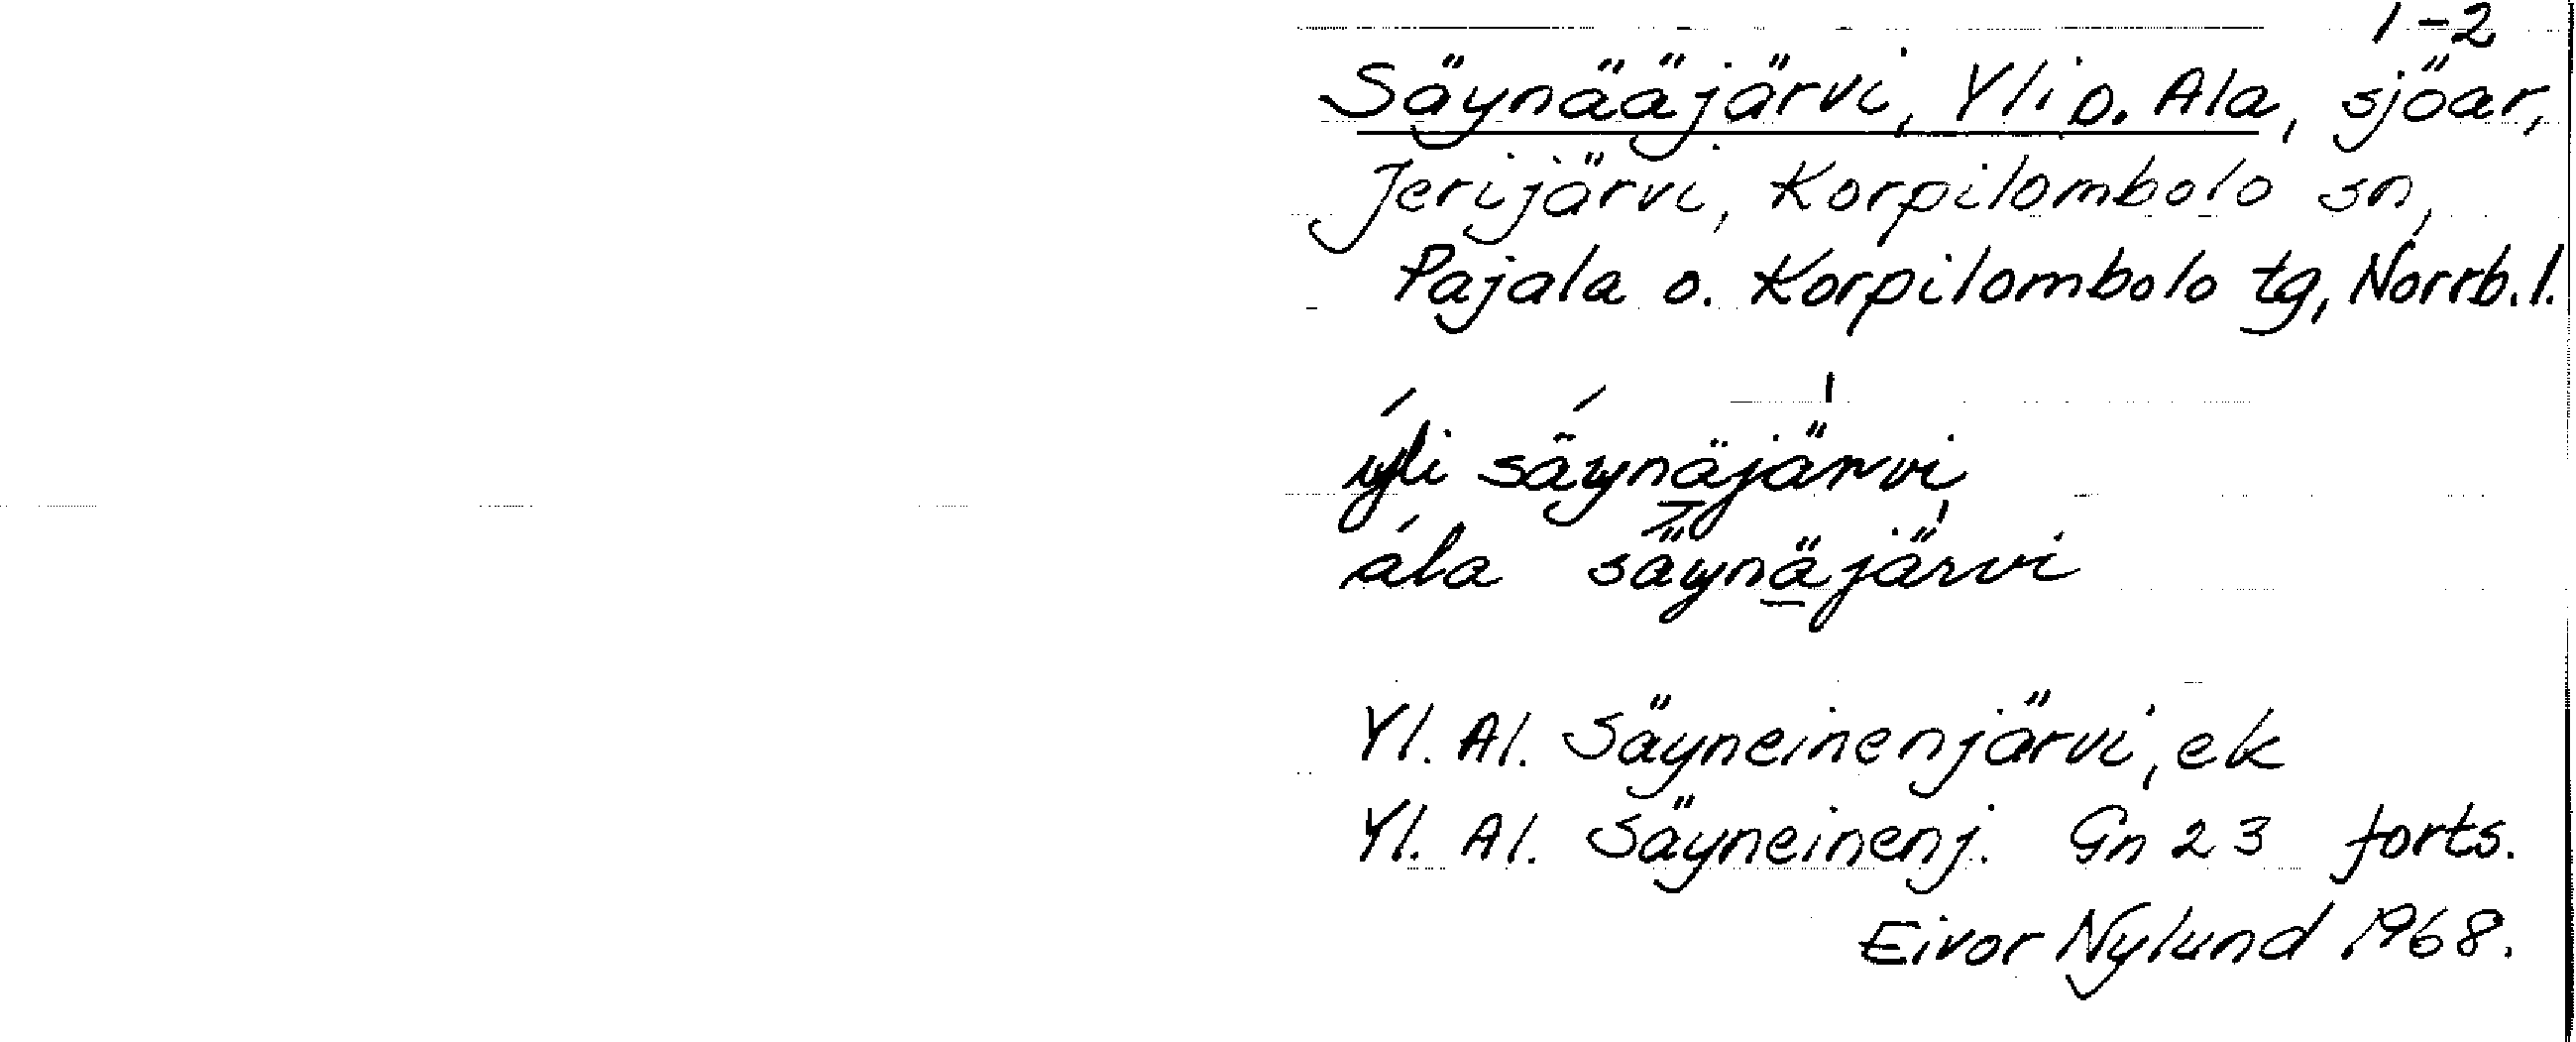 1-2
Säynääjärvi, Yli o. Ala, sjöar,
Jerijärvi, Korpilombolo sn,
Pajala o. Korpilombolo tg, Norrb. l.
yli säynäjärvi
ala säynäjärvi
Yl. Al. Säyneinenjärvi, ek
Yl. Al. Säyneinenj. Gn 23 forts.
Eivor Nylund 1968.